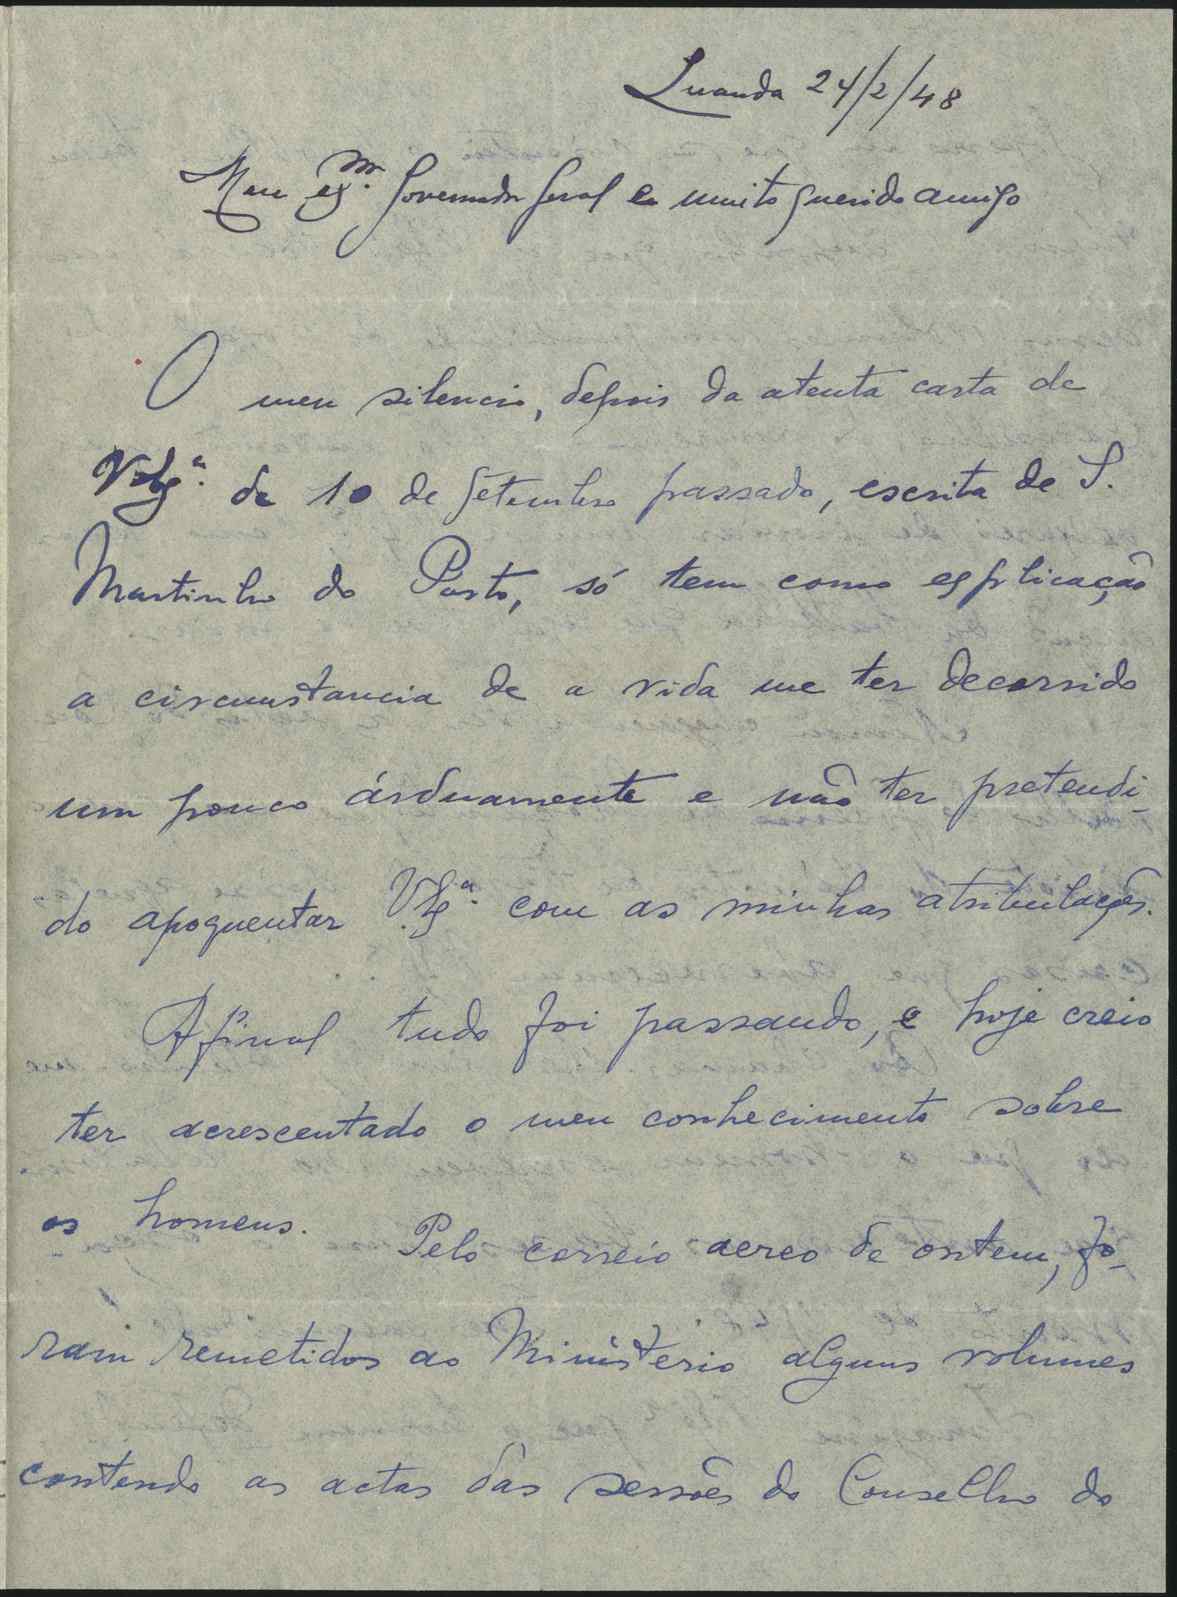 Luanda 24/2/48
Meu exmº. Governador Geral e muito querido amigo
O meu silencio, depois da atenta carta de
V. Exª. de 10 de Setembro passado, escrita de S.
Martinho do Porto, só tem como explicação
a circumstancia de a vida me ter decorrido
um pouco árduamente e não ter pretendi-
do apoquentar V. Exª. com as minhas atribulações.
Afinal tudo foi passando, e hoje creio
ter acrescentado o meu conhecimento sobre
os homens. Pelo correio aereo de ontem, fo-
ram remetidos ao Ministerio alguns volumes
contendo as actas das sessões do Conselho do